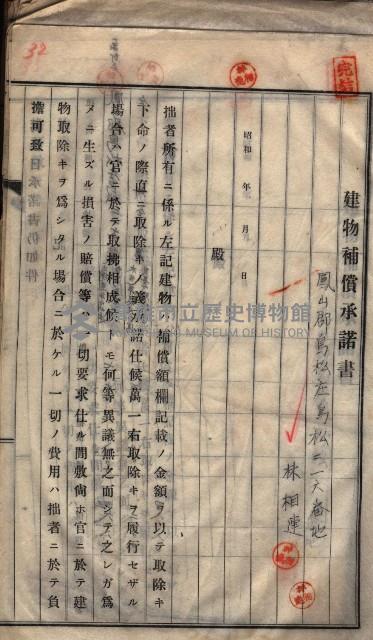 建物補償承諾書
鳳山郡鳥松庄鳥松二一六番地
林相連
昭和　年　月　日
殿
拙者所有ニ係ル左記建物ノ補償額欄記載ノ金額ヲ以テ取除キ
下命ノ際直ニ取除キ義承諾仕候萬一右取除キヲ履行セザル
場合ハ官ニ於テ取拂相成候トモ何等異議無之而シテ之レガ爲
メニ生ズル損害ノ賠償等ハ一切要求仕ル間敷尙ホ官ニ於テ建
物取除キヲ爲シタル場合ニ於ケル一切ノ費用ハ拙者ニ於テ負
擔可致日承諾書仍如件
完結
32
歷史博物館
MUSEUM OF HISTORY